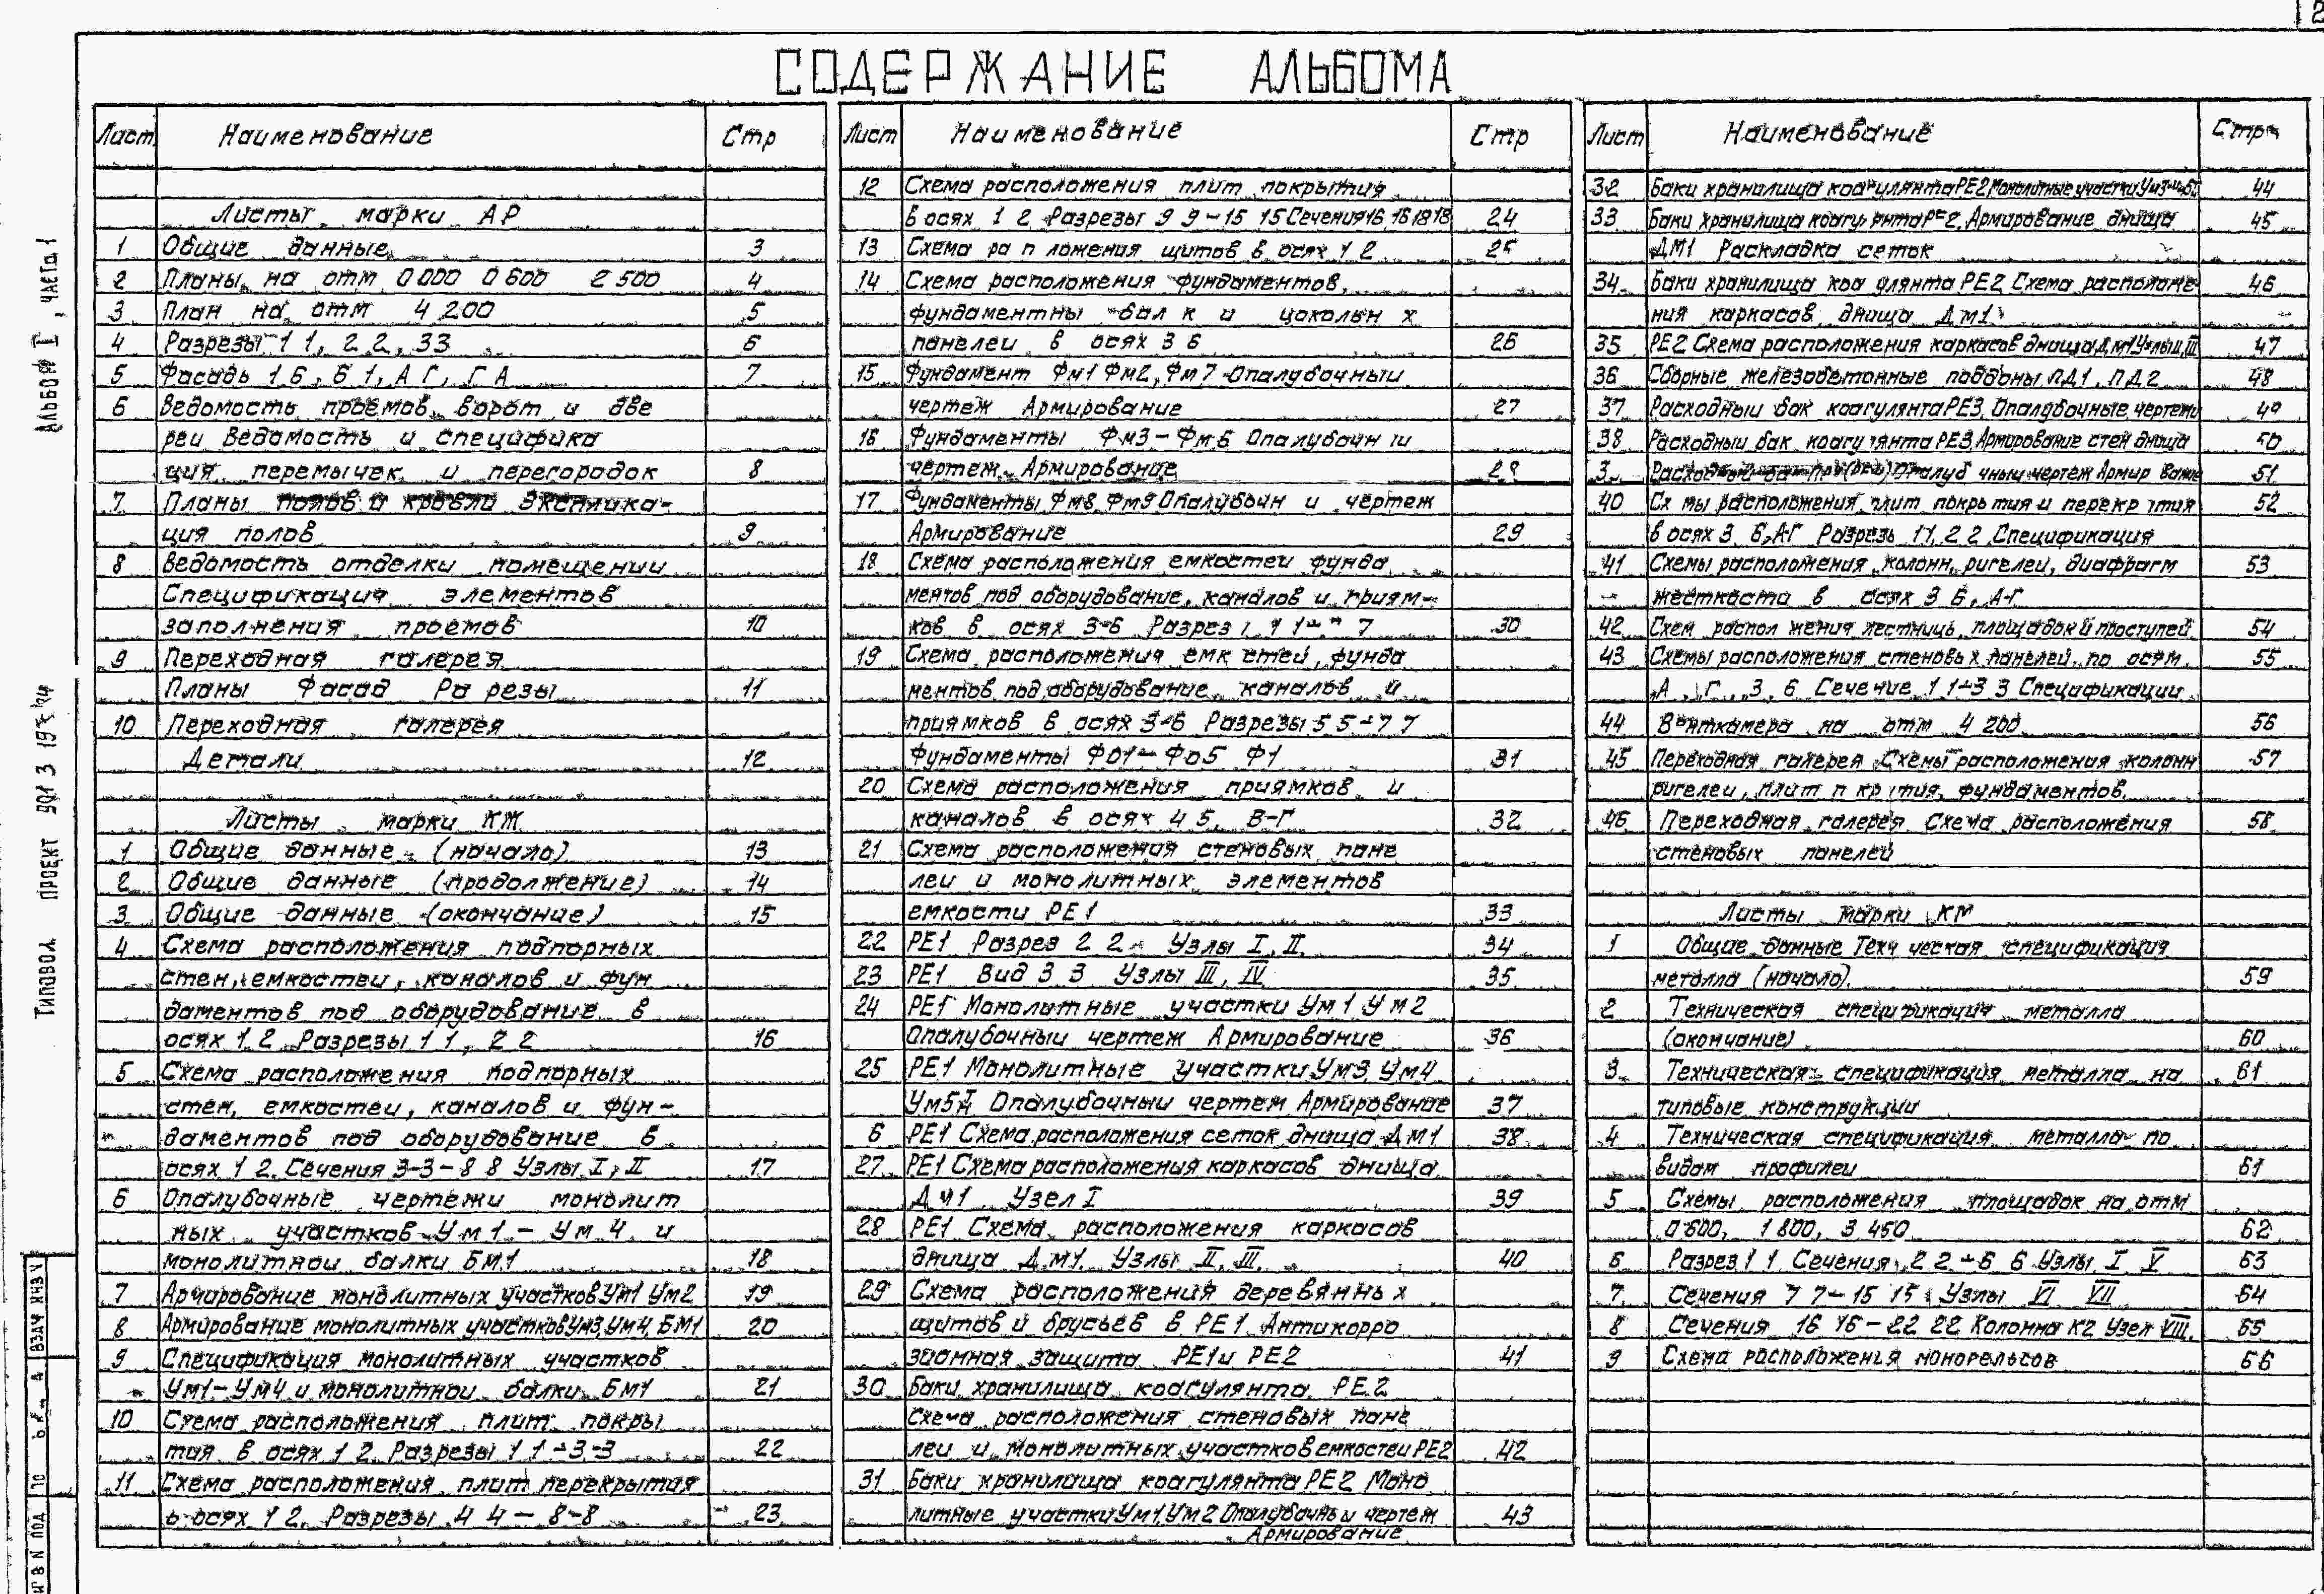 2
СОДЕРЖАНИЕ АЛЬБОМА
Лист Наименование Стр
Листы марки АР
1 Общие данные 3
2 Планы на отм 0 000 0 600 2 500 4
3 План на отм 4 200 5
4 Разрезы 1 1, 2 2, 3 3 6
5 Фасады 1 6, 6 1, А Г, Г А 7
6 Ведомость проемов ворот и две
реи Ведомость и специфика
ция перемычек и перегородок 8
7 Планы полов и кровли Экспликa-
ция полов 9
8 Ведомость отделки помещении
Спецификация элементов
заполнения проемов 10
9 Переходная галерея
Планы Фасад Ра резы 11
10 Переходная галерея
Детали 12
Листы марки КЖ
1 Общие данные (начало) 13
2 Общие данные (продолжение) 14
3 Общие данные (окончание) 15
4 Схема расположения подпорных
стен, емкостеи, каналов и фун
даментов под оборудование в
осях 1 2 Разрезы 1 1, 2 2 16
5 Схема расположения подпорных
стен, емкостеи, каналов и фун-
даментов под оборудование в
осях 1 2. Сечения 3-3-8 8 Узлы I, II 17
6 Опалубочные чертежи монолит
ных участков Ум 1 - Ум 4 и
монолитнои балки БМ1 18
7 Армирование монолитных участков Ум1 Ум2 19
8 Армирование монолитных участков Ум3, Ум4, БМ1 20
9 Спецификация монолитных участков
Ум1-Ум4 и монолитнои балки БМ1 21
10 Схема расположения плит покры
тия в осях 1 2 Разрезы 1 1-3-3 22
11 Схема расположения плит перекрытия
в осях 1 2. Разрезы 4 4-8-8 23
Лист Наименование Стр
12 Схема расположения плит покрытия
в осях 1 2 Разрезы 9 9-15 15 Сечения 16 16 18 18 24
13 Схема ра п ложения щитов в осях 1 2 25
14 Схема расположения фундаментов,
фундаментны бал к и цокольн х
панелеи в осях 3 6 26
15 Фундамент Фм1 Фм2, Фм7 Опалубочныи
чертеж Армирование 27
16 Фундаменты Фм3-Фм6 Опалубочн ıи
чертеж Армирование 28
17 Фундаменты Фм8, Фм9 Опалубочн и чертеж
Армирование 29
18 Схема расположения емкостеи фунда
ментов под оборудование, каналов и приям-
ков в осях 3-6 Разрез 1 1 7 30
19 Схема расположения емк стей, фунда
ментов под оборудование каналов и
приямков в осях 3-6 Разрезы 5 5-7 7
Фундаменты Фо1-Фо5 Ф1 31
20 Схема расположения приямков и
каналов в осях 4 5, В-Г 32
21 Схема расположения стеновых пане
леи и монолитных элементов
емкости РЕ1 33
22 РЕ1 Разрез 2 2 Узлы I, II 34
23 РЕ1 Вид 3 3 Узлы III, IV 35
24 РЕ1 Монолитные участки Ум 1 Ум 2
Опалубочныи чертеж Армирование 36
25 РЕ1 Монолитные участки Ум3, Ум4
Ум5 Опалубочныи чертеж Армирование 37
6 РЕ1 Схема расположения сеток днища Дм1 38
27 РЕ1 Схема расположения каркасов днища
Дм1 Узел I 39
28 РЕ1 Схема расположения каркасов
днища Дм1. Узлы II, III. 40
29 Схема расположения деревяннь х
щитов и брусьев в РЕ1 Антикорро
зионная защита РЕ1 и РЕ2 41
30 Баки хранилища коагулянта РЕ2
Схема расположения стеновых пане
леи и монолитных участков емкостеи РЕ2 42
31 Баки хранилища коагулянта РЕ2 Моно
литные участки Ум1, Ум2 Опалубочнь и чертеж 43
Армирование
Лист Наименование Стр
32 Баки хранилища коагулянта РЕ2 Монолитные участки Ум3 44
33 Баки хранилища коагу янта РЕ2, Армирование днища 45
ДМ1 Раскладка сеток
34 Баки хранилища коа улянта РЕ2 Схема расположе 46
ния каркасов днища Дм1
35 РЕ2 Схема расположения каркасов днища Дм1 Узлы II, III 47
36 Сборные железобетонные поддоны ПД1, ПД2 48
37 Расходныи бак коагулянта РЕ3 Опалубочные чертежи 49
38 Расходныи бак коагулянта РЕ3 Армирование стен днища 50
3 Опалуб чныи чертеж Армир вание 51
40 Сх мы расположения плит покрь тия и перекр тия 52
в осях 3 6, А-Г Разрезь 1 1, 2 2 Спецификация
41 Схемы расположения колонн, ригелеи, диафрагм 53
жесткости в осях 3 6, А-Г
42 Схем распол жения лестниць площадок й проступей 54
43 Схемы расположения стеновь х панелей, по осям 55
А, Г, 3, 6 Сечение 1 1-3 3 Спецификации
44 Венткамера на отм 4 200 56
45 Переходная галерея Схемы расположения колонн 57
ригелеи, плит п кр тия, фундаментов.
46 Переходная галерея Схема расположения 58
стеновых панелеи
Листы марки КМ
1 Общие данные Техн ческая спецификация
металла (начало). 59
2 Техническая спецификация металла
(окончание) 60
3 Техническая спецификация металла на 61
типовые конструкции
4 Техническая спецификация металла по
видам профилеи 61
5 Схемы расположения площадок на отм
0 600, 1 800, 3 450 62
6 Разрез 1 1 Сечения 2 2-6 6 Узлы I V 63
7 Сечения 7 7-15 15 Узлы VI VII 64
8 Сечения 16 16-22 22 Колонна К2 Узел VIII. 65
9 Схема расположения монорельсов 66
Типовой проект 901 3 Альбом I, часть 1